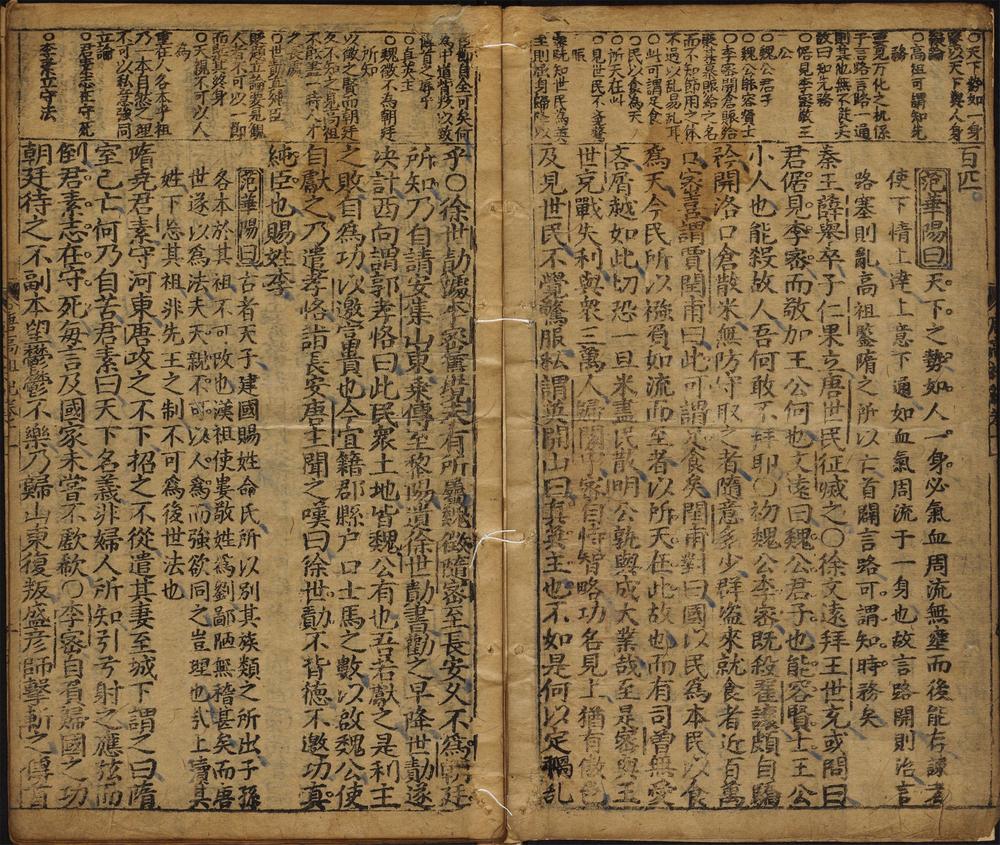 ○天下勢如一身
○高祖可謂知先
務
○倨見李密敬王
公
○魏公君子
○魏公能容賢士
○李密開倉賑給
○民以食為天
○所天在此
○見世民不覺驚
服
百匹
范華陽曰天下之勢如人一身必氣血周流無壅而後能存諫者
使下情上達上意下通如血氣周流于一身也故言路開則治言
路塞則亂高祖鑒隋之所以亡首闢言路可謂知時務矣
秦王薛舉卒子仁果立唐世民征滅之○徐文遠拜王世充或問曰
君倨見李密而敬加王公何也文遠曰魏公君子也能容賢士王公
小人也能殺故人吾何敢不拜耶○初魏公李密既殺翟讓頗自驕
矜開洛口倉散米無防守取之者隨意多少群盗來就食者近百萬
口密喜謂賈閏甫曰此可謂足食矣閏甫對曰國以民爲本民以食
爲天今民所以襁負如流而至者以所天在此故也而有司曾無愛
吝屑越如此切恐一旦米盡民散明公孰與成大業哉至是密與王
世充戰失利與衆三萬人歸關中密自恃智略功名見上猶有傲色
及見世民不覺驚服私謂英開山曰真英主也不如是何以定禍乱
○真英主
○魏徵不為朝廷
所知
○天親不可以人
為
○君素志在守死
○李密立守法
乎○徐世勣據李密舊境未有所屬魏徵隨密至長安久不爲朝廷
所知乃自請安集山東乘傳至黎陽遺徐世勣書勸之早降世勣遂
决計西向謂郭孝恪曰此民衆土地皆魏公有也吾若獻之是利主
之敗自爲功以邀富貴也今宜籍郡縣户口士馬之數以啟魏公使
自獻之乃遣孝恪詣長安唐主聞之嘆曰徐世勣不背德不邀功真
純臣也賜姓李
范華陽曰古者天子建國賜姓命氏所以别其族類之所出子孫
各本於其祖不可改也漢祖使婁敬姓爲劉鄙陋無稽甚矣而唐
世遂以爲法夫天親不可以人爲而強欲同之豈理也㢤上瀆其
姓下忘其祖非先王之制不可爲後世法也
隋堯君素守河東唐攻之不下招之不從遣其妻至城下謂之曰隋
室已亡何乃自苦君素曰天下名義非婦人所知引弓射之應弦而
倒君素志在守死每言及國家未嘗不歔欷○李密自負歸國之功
朝廷待之不副本望鬱鬱不樂乃歸山東復叛盛彦師擊斬之傳首